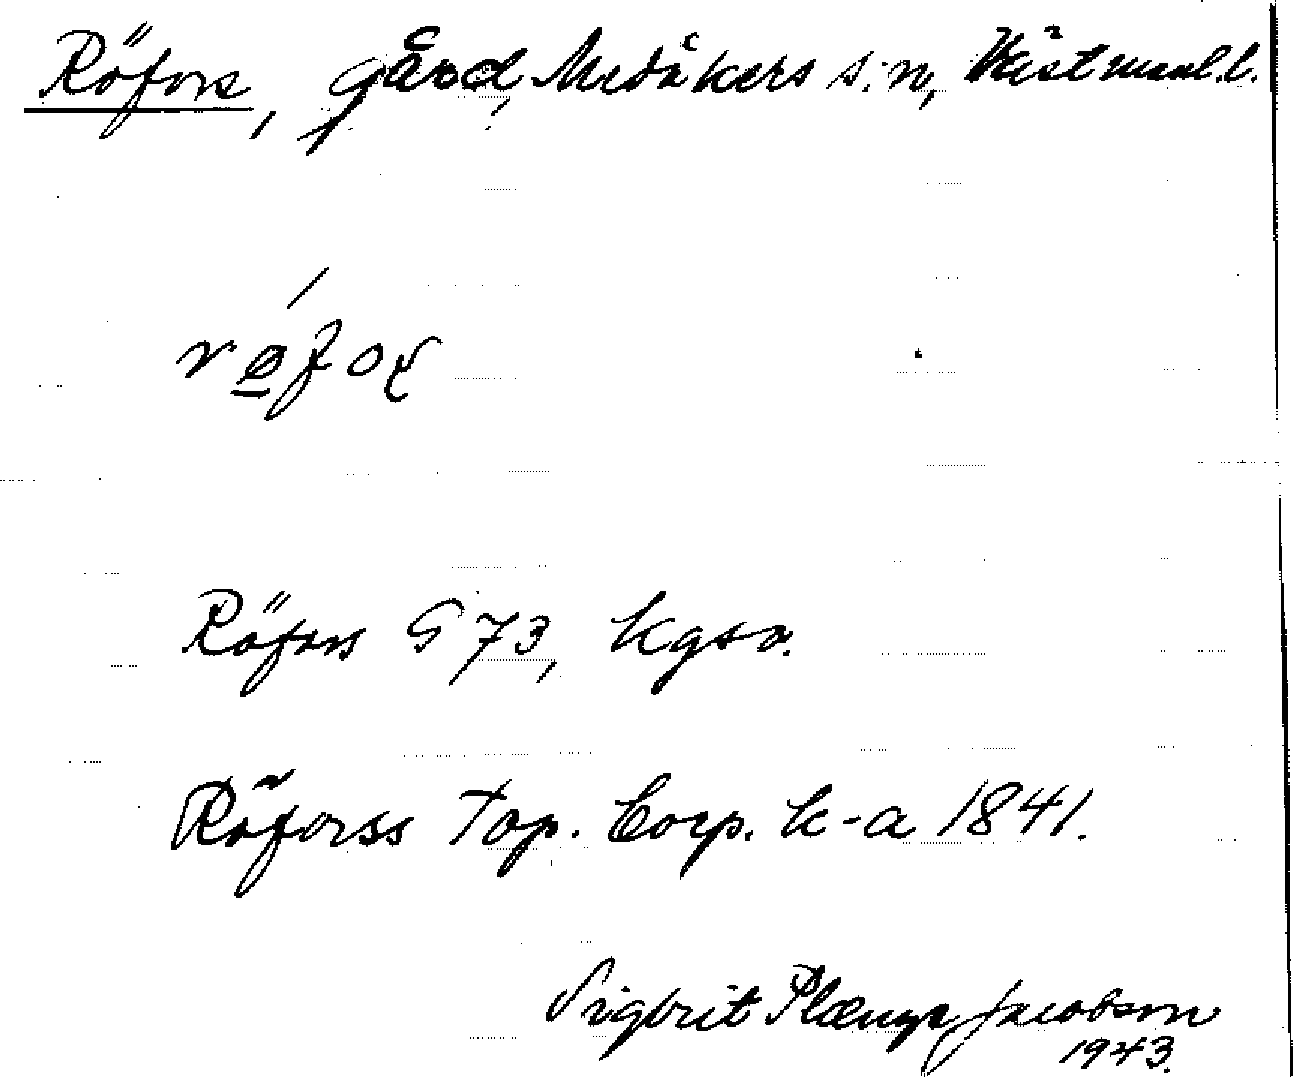 Röfors, gård, Medåkers s:n, Västmanl.l.
rǿ̱foʂ
Röfors G 73, kgsv.
Röforss Top. Corp. k-a 1841.
Sigbrit Plænge Jacobson
1943.